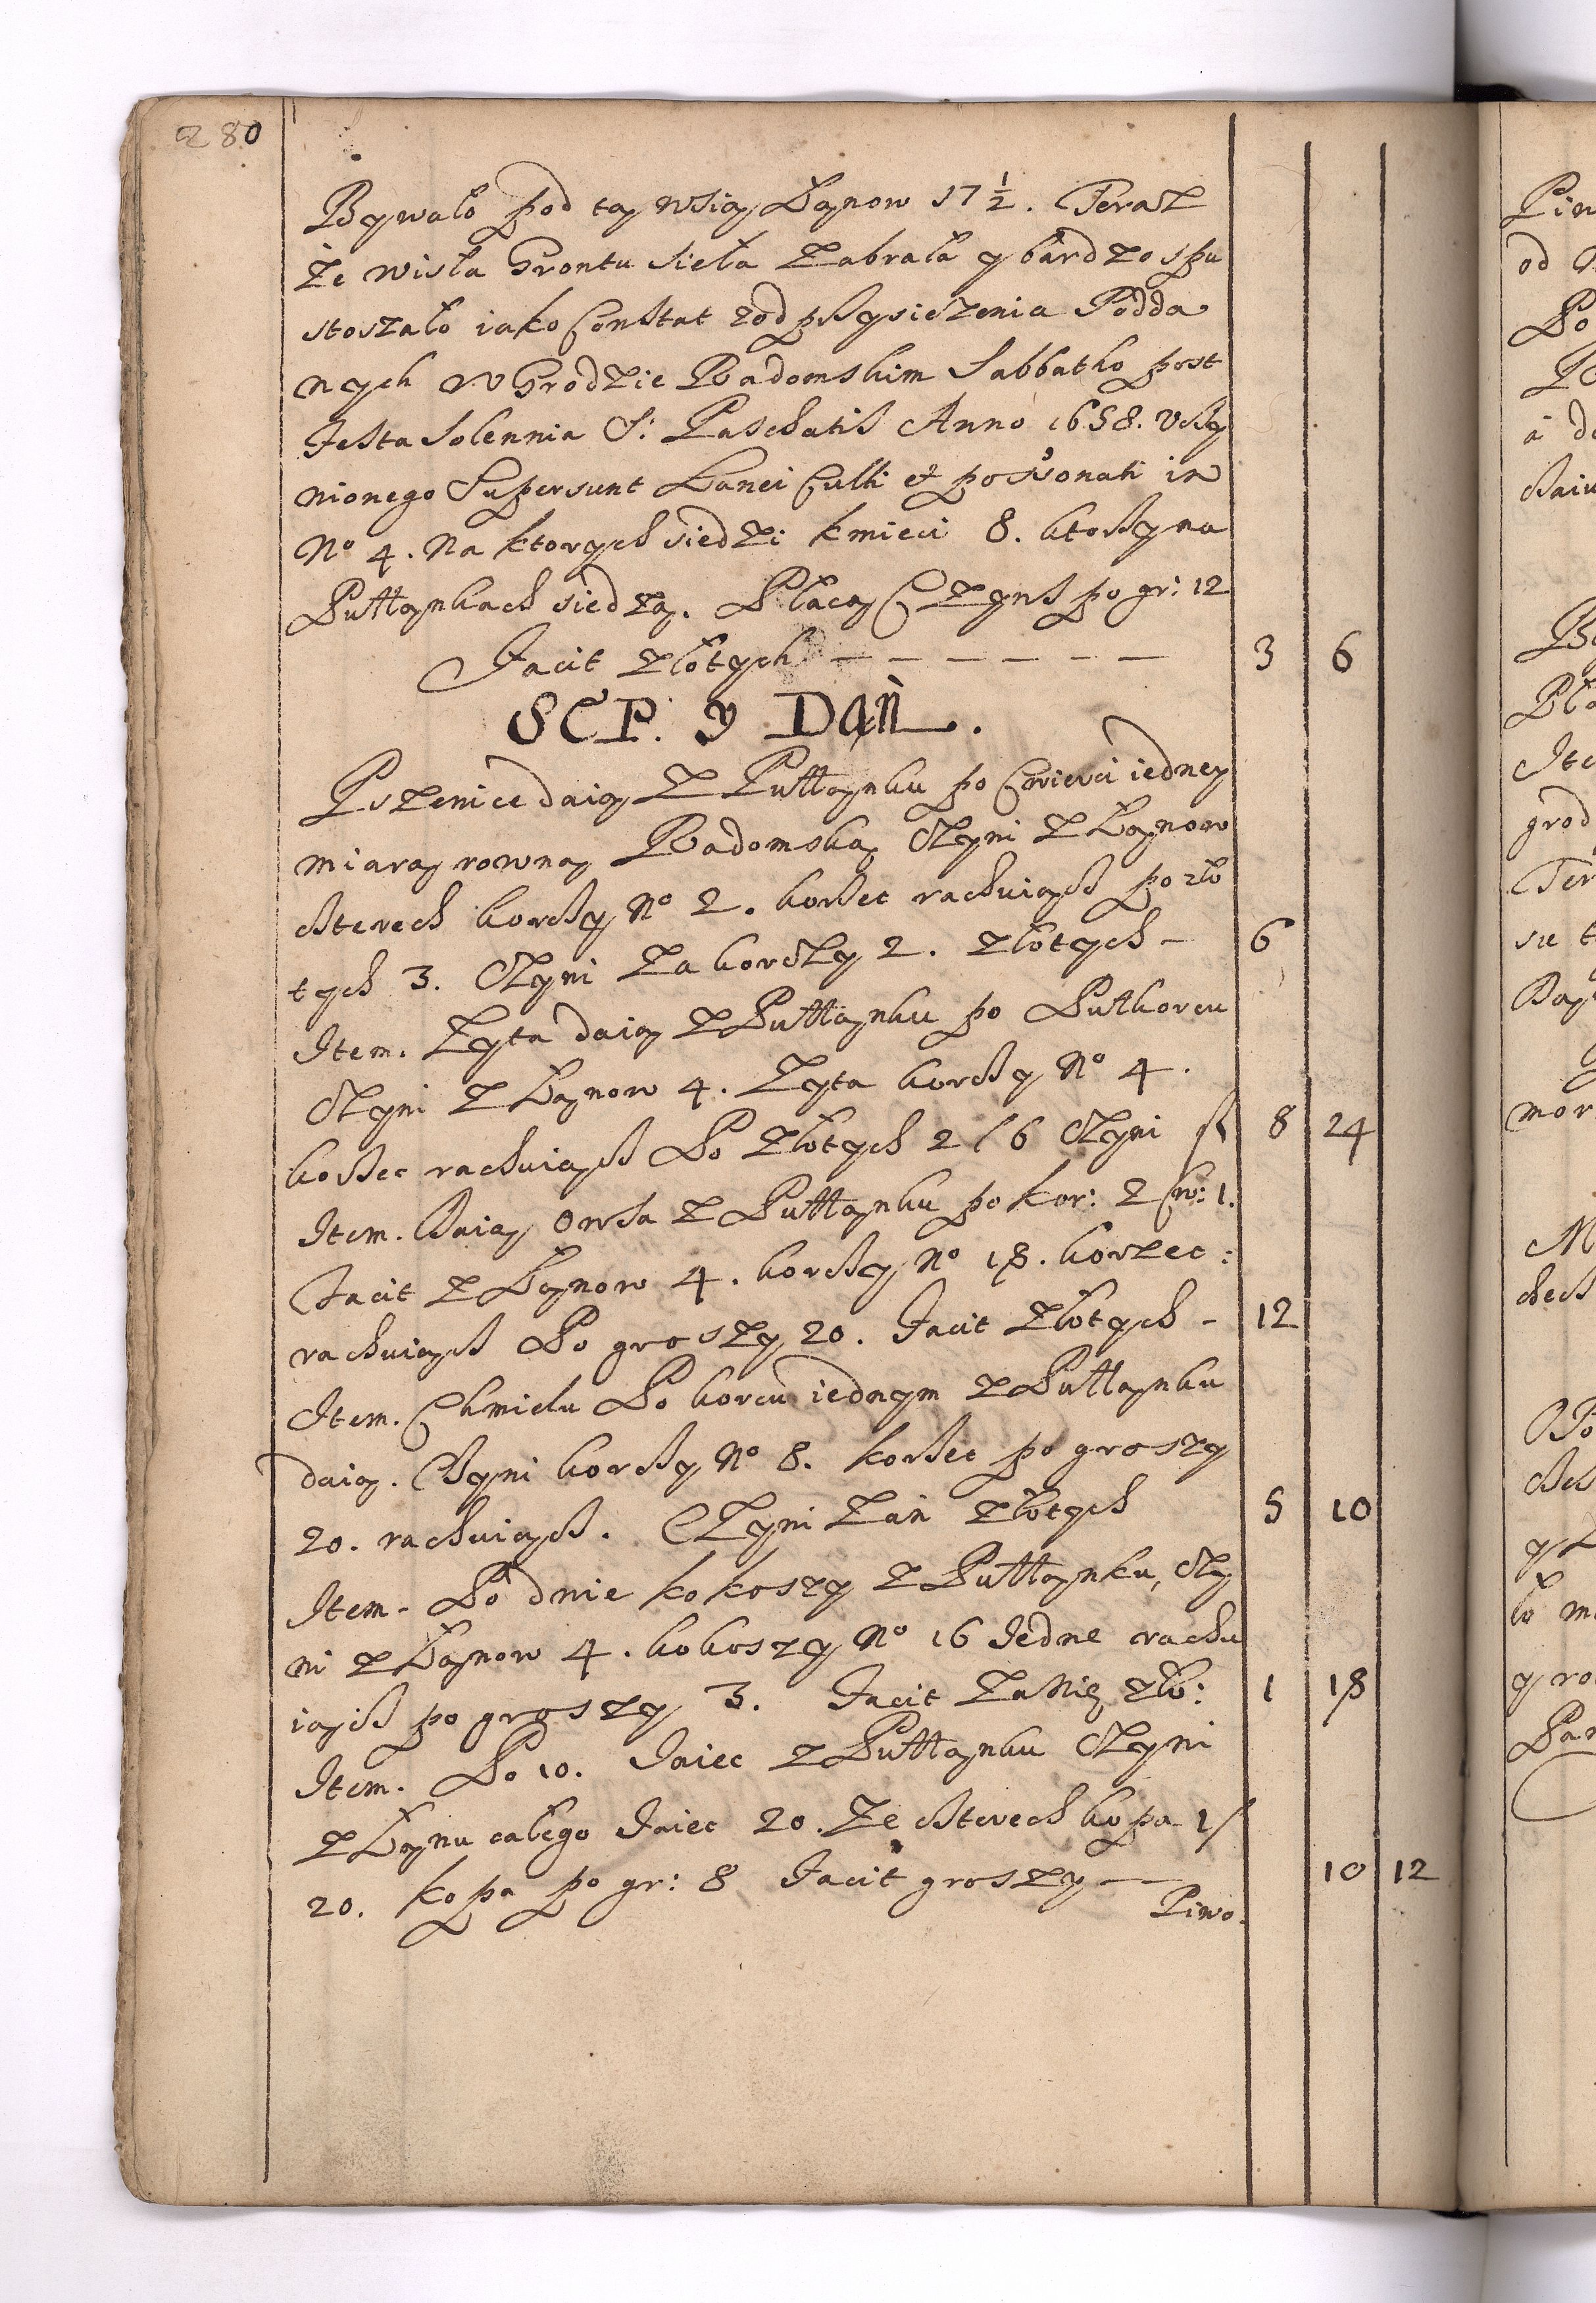 280
Bywało pod tą wsią Łanow 17 1/2. Teraz
że wisła Grontu sieła zabrała y bardzo spu
stoszało iako Constat zod przysiezenia Podda
nych w Grodzie Radomskim Sabbatho post
Festa Solennia S: Paschatis Anno 1658. uczy
nionego Supersunt Lanei Culti et possionati in
No 4. Na ktorych siedzi kmieci 8. ktorzy na
Pułłankach siedzą. Płacą Czynsz po gr: 12
Facit złotych — — — — — — 3 6
SEP. y DAŃ.
Pszenice daią z Pułłanku po Cwierci iedney
miarą rowną Radomską czyni z Łanow
czterech korczy No 2. korzec rachuiącz po zło
tych 3. Czyni za korczy 2. złotych - 6
Item. Zyta daią z Pułłanku po Pułkorcu
Czyni z Łanow 4. Zyta korczy No 4.
korzec rachuiącz Po złotych 2/6 Czyni fl 8 24
Item. Daią Owsa z Pułłanku po kor: 2 Cw: 1.
Facit z Łanow 4. korczy No 18. korzec:
rachuiącz Po groszy 20. Facit złotych - 12
Item. Chmielu Po korcu iednym z Pułłanku
daią. Czyni korczy No 8. korzec po groszy
20. rachuiącz. Czyni zań złotych 5 10
Item- Po dnie kokoszy z Pułłanku, Czy
ni z Łanow 4. kokoszy No 16 Jedne rachu
iącz po groszy 3. Facit zanie zło: 1 18
Item. Po 10. Jaiec z Pułłanku Czyni
z Łanu całego Jaiec 20. Ze czterech kopa 1/
20. kopa po gr: 8 Facit groszy — 10 12
Piwo.